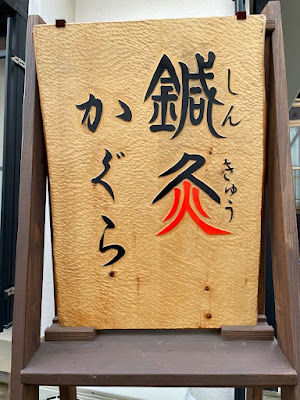 鍼灸
しんきゅう
かぐら